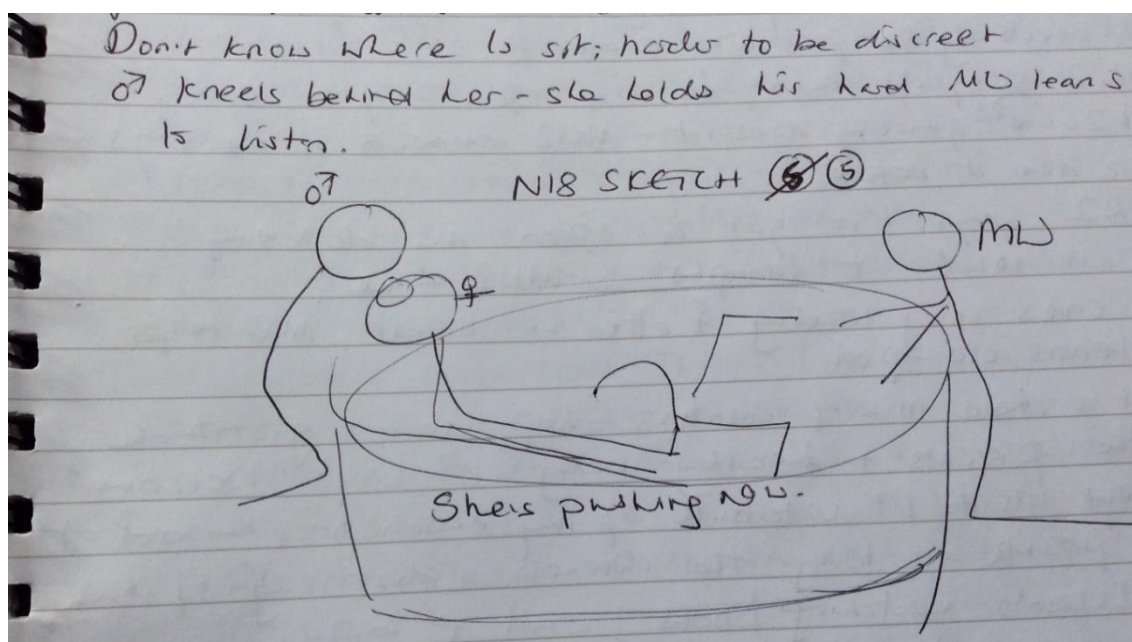 Don't know where to sit; harder to be discreet
♂ kneels behind her - she holds his hand MW leans
to listen.
N18 SKETCH 6 5
♂
♀
MW
She is pushing now.